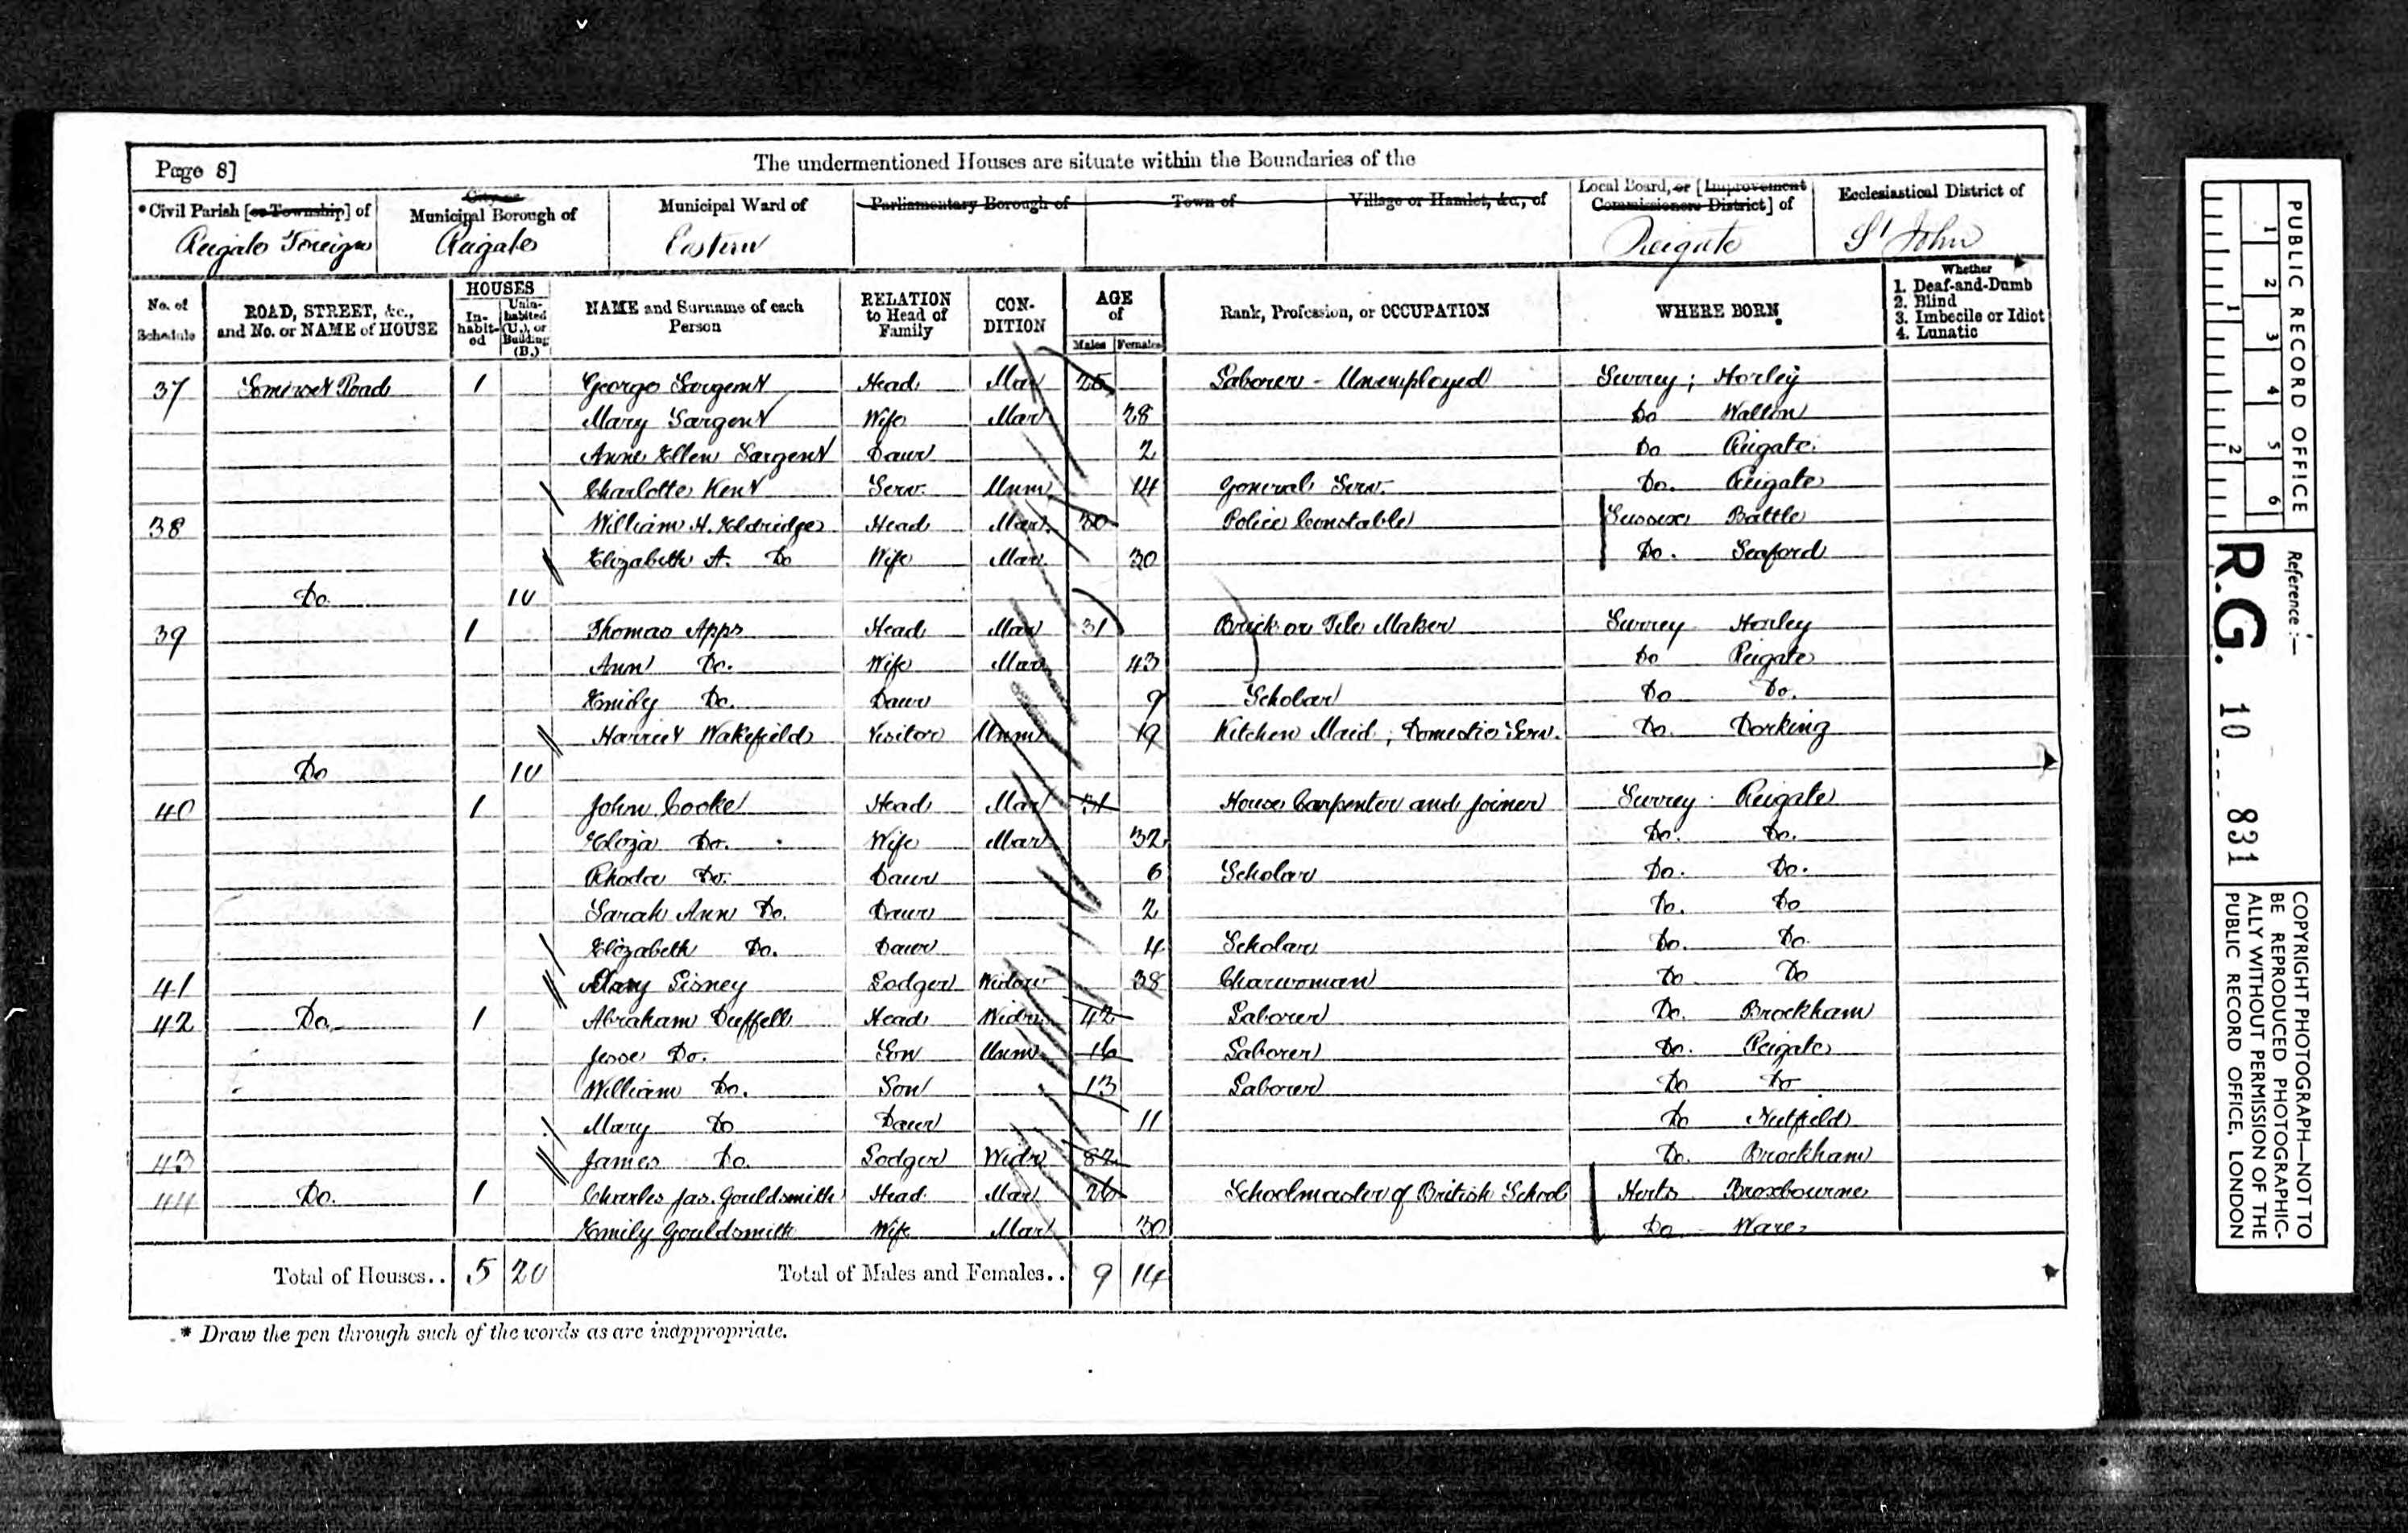 Page 8]
The undermentioned Houses are situate within the Boundaries of the
*Civil Parish [or Township] of
Reigate Foreign
City or Municipal Borough of
Reigate
Municipal Ward of
Eastern
Parliamentary Borough of
Town of
Village or Hamlet, &c., of
Local Board, or [Improvement Commissioners District] of
Reigate
Ecclesiastical District of
St John
No. of Schedule
ROAD, STREET, &c., and No. or NAME of HOUSE
HOUSES
Inhabited
Uninhabited (U.), or Building (B.)
NAME and Surname of each Person
RELATION to Head of Family
CONDITION
AGE of
Males
Females
Rank, Profession, or OCCUPATION
WHERE BORN
Whether
1. Deaf-and-Dumb
2. Blind
3. Imbecile or Idiot
4. Lunatic
37 Somerset Road 1 George Sargent Head Mar 25 Laborer - Unemployed Surrey; Horley
Mary Sargent Wife Mar 28 Do Walton
Anne Ellen Sargent Daur 2 Do Reigate
Charlotte Kent Serv. Unm 14 General Serv. Do. Reigate
38 William H. Eldridge Head Mar. 30 Police Constable Sussex Battle
Elizabeth A. Do Wife Mar. 30 Do. Seaford
Do. 1U
39 1 Thomas Apps Head Mar 31 Brick or Tile Maker Surrey Horley
Ann Do. Wife Mar 43 Do Reigate
Emily Do. Daur 9 Scholar Do Do.
Harriet Wakefield Visitor Unm 19 Kitchen Maid; Domestic Serv. Do. Dorking
Do 1U
40 1 John Cooke Head Mar 31 House Carpenter and Joiner Surrey Reigate
Eliza Do. Wife Mar 32 Do. Do.
Rhoda Do. Daur 6 Scholar Do. Do.
Sarah Ann Do. Daur 2 Do. Do
Elizabeth Do. Daur 4 Scholar Do. Do.
41 Mary Lisney Lodger Widow 38 Charwoman Do. Do
42 Do. 1 Abraham Duffell Head Widr. 42 Laborer Do. Brockham
Jesse Do. Son Unm 16 Laborer Do. Reigate
William Do. Son 13 Laborer Do Do
Mary Do Daur 11 Do Nutfield
43 James Do. Lodger Widr 82 Do. Brockham
44 Do. 1 Charles Jas. Gouldsmith Head Mar 26 Schoolmaster of British School Herts Broxbourne
Emily Gouldsmith Wife Mar 30 Do Ware
Total of Houses.. 5 2U Total of Males and Females.. 9 14
* Draw the pen through such of the words as are inappropriate.
PUBLIC RECORD OFFICE
1 2 3 4 5 6
1 2
Reference:-
R.G. 10 831
COPYRIGHT PHOTOGRAPH—NOT TO
BE REPRODUCED PHOTOGRAPHIC-
ALLY WITHOUT PERMISSION OF THE
PUBLIC RECORD OFFICE, LONDON